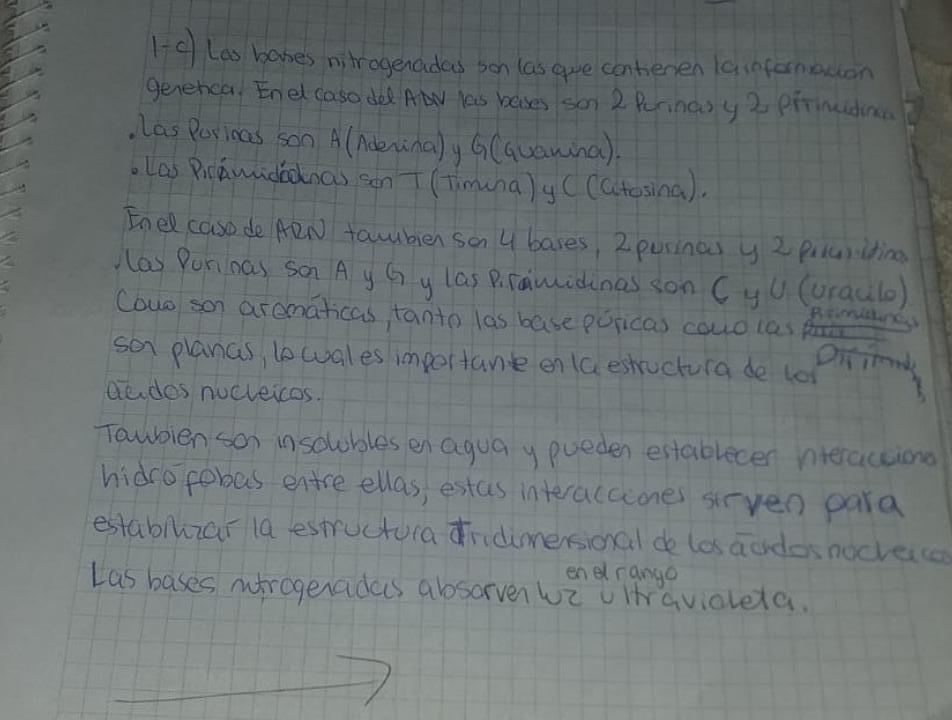 1-c) Las bases nitrogenadas son las que contienen la información
genetica. En el caso del ADN las bases son 2 Purinas y 2 Pirimidinas
• Las Purinas son A (Adenina) y G (Guanina).
• Las son T (Timina) y C (Citosina).
En el caso de ARN tambien son 4 bases, 2 purinas y 2
• Las Purinas son A y G y las Pirámidinas son C y U (Uracilo)
Como son aromáticas, tanto las base púricas como las Pirimidinas
son planas, lo cual es importante en la estructura de los
ácidos nucleicos.
Tambien son insolubles en agua y pueden establecer interacciones
hidrófobas entre ellas, estas interacciones sirven para
estabilizar la estructura Tridimensional de los ácidos nocleicos
en el rango
Las bases nitrogenadas absorven luz ultravioleta.